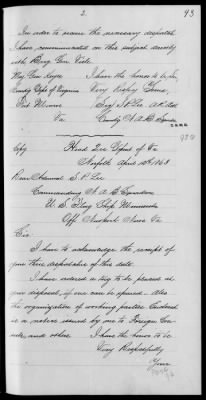 2. 93
In order to secure the necessary dispatch
I have communicated on this subject directly
with Brig Gen Viele
Maj Gen Keyes I have the honor to be, Sir,
Comdg Dept of Virginia Very Resp'y Yours,
Fort Monroe Sig S. P. Lee A. R. Adml
Va Comdg N A B Squadn
Copy Head Qrs Dept of Va
Norfolk April 1863
Rear Admiral S. P. Lee
Commanding N. A. B. Squadron
U. S. Flag Ship Minnesota
Off Newport News Va
Sir
I have to acknowledge the receipt of
your three dispatches of this date.
I have ordered a tug to be placed at
your disposal, if one can be spared. Also
the organization of working parties. Enclosed
is a notice issued by me to Foreign Con-
suls, and others. I have the honor to be
Very Respectfully
Your